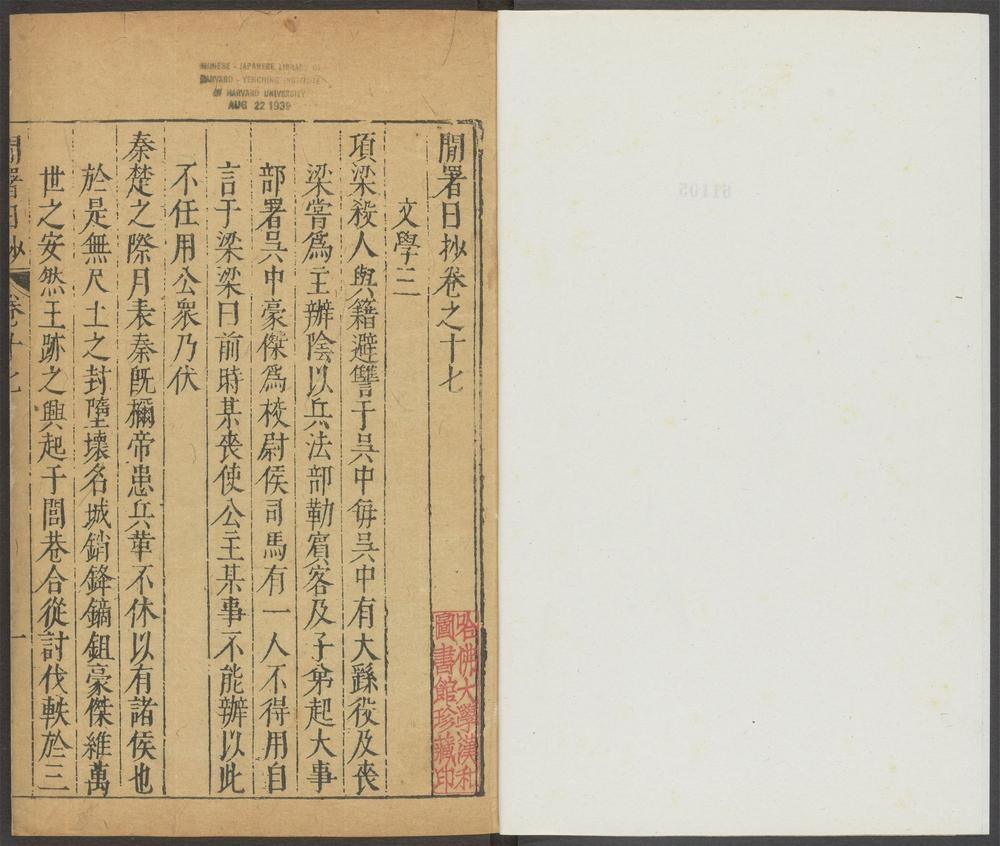 CHINESE - JAPANESE LIBRARY OF
HARVARD - YENCHING INSTITUTE
OF HARVARD UNIVERSITY
AUG 22 1939
61105
閒署日抄卷之十七
文學三
項梁殺人與籍避讐于吳中每吳中有大繇役及喪
梁嘗爲主辦陰以兵法部勒賓客及子弟起大事
部署吳中豪傑爲校尉侯司馬有一人不得用自
言于梁梁曰前時某喪使公主某事不能辦以此
不任用公衆乃伏
秦楚之際月表秦旣稱帝患兵革不休以有諸侯也
於是無尺土之封墮壞名城銷鋒鏑鉏豪傑維萬
世之安然王跡之興起于閭巷合從討伐軼於三
閒署日抄 卷十七 一
哈佛大學漢和
圖書館珍藏印